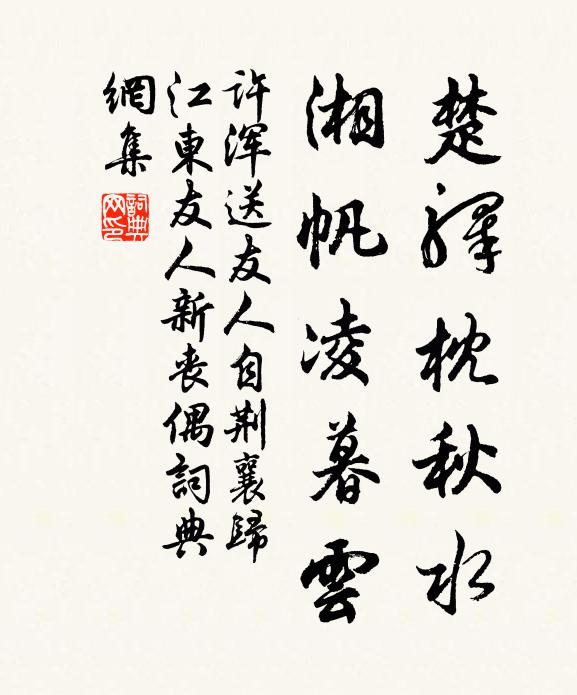 楚驛枕秋水
湘帆凌暮雲
許渾送友人自荆襄歸
江東友人新喪偶詞典
網集
詞典
网印